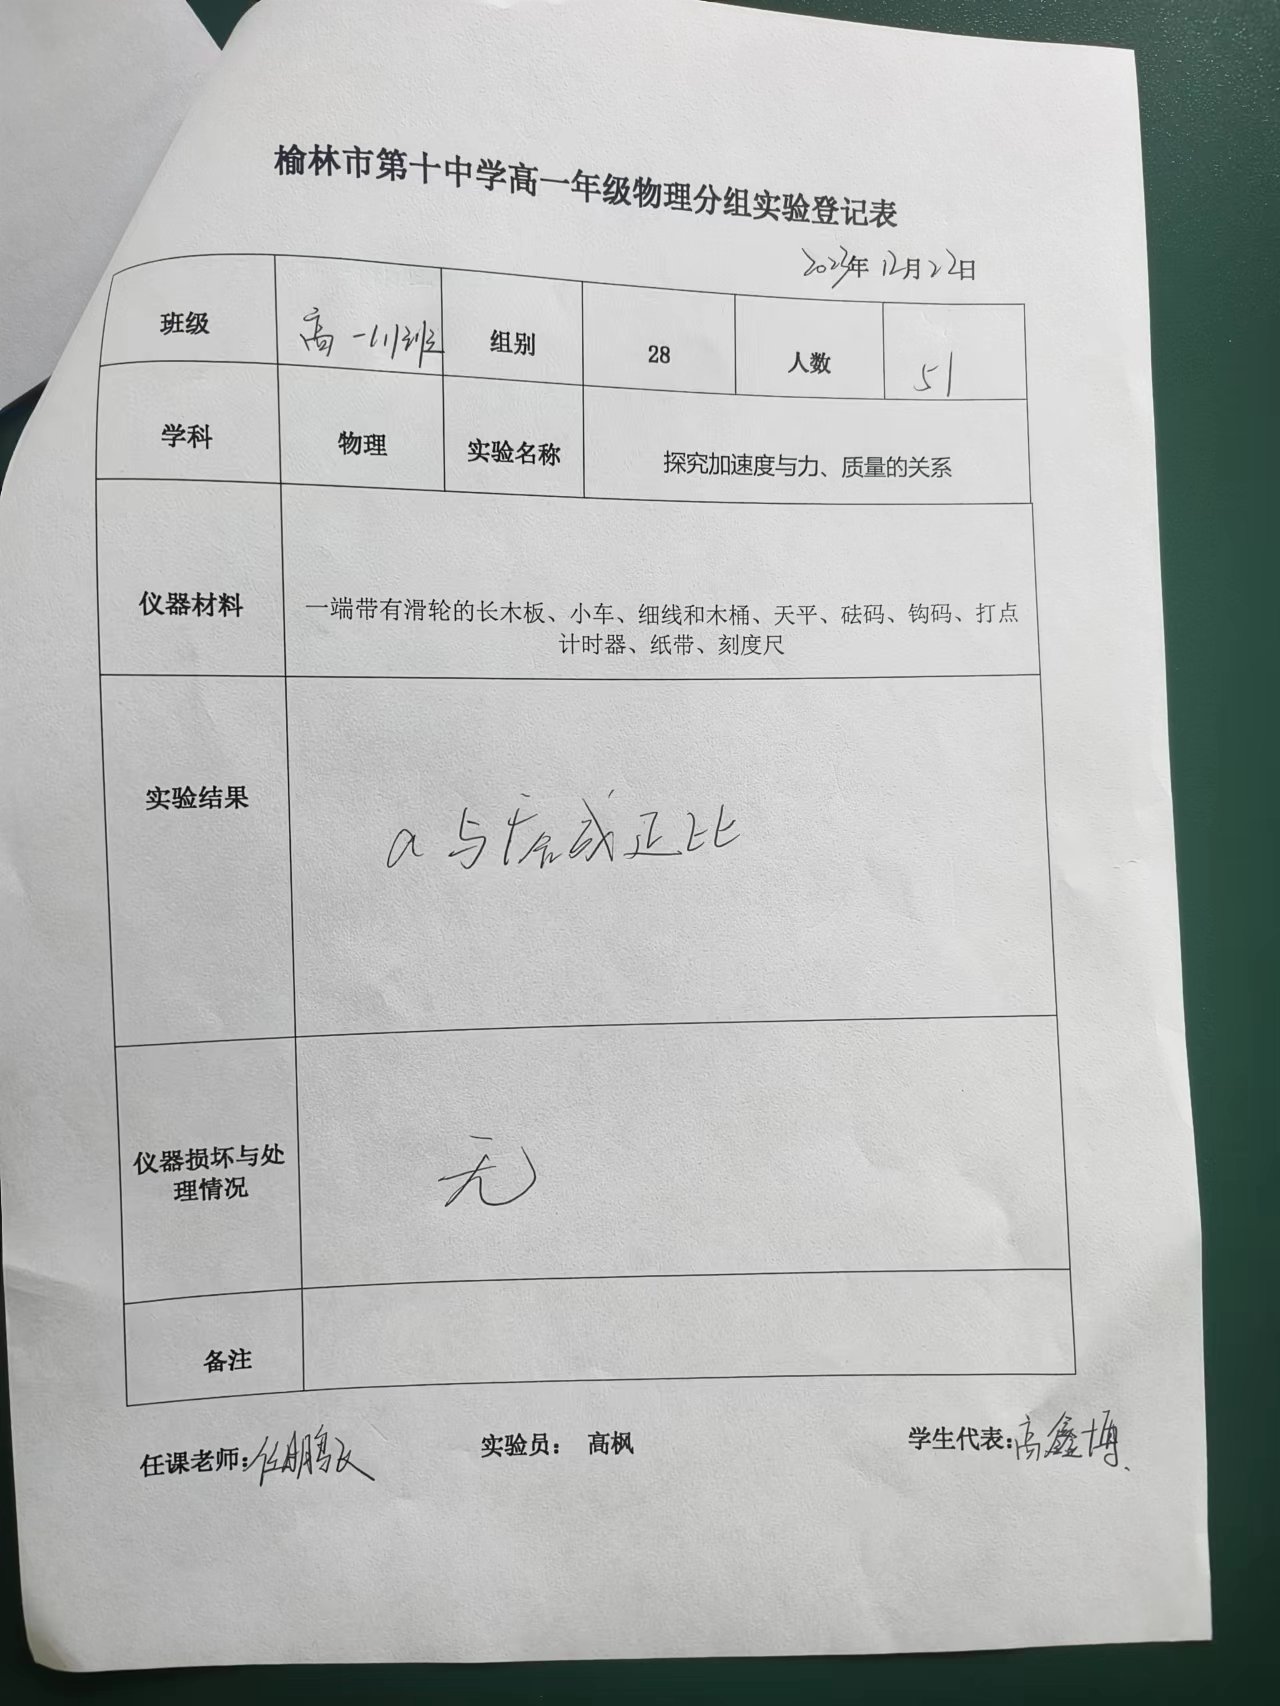 榆林市第十中学高一年级物理分组实验登记表
2023年12月22日
班级 高一(1)班 组别 28 人数 51
学科 物理 实验名称 探究加速度与力、质量的关系
仪器材料 一端带有滑轮的长木板、小车、细线和木桶、天平、砝码、钩码、打点
计时器、纸带、刻度尺
实验结果 a与F合成正比
仪器损坏与处
理情况
无
备注
任课老师:任鹏飞 实验员: 高枫 学生代表:高鑫博